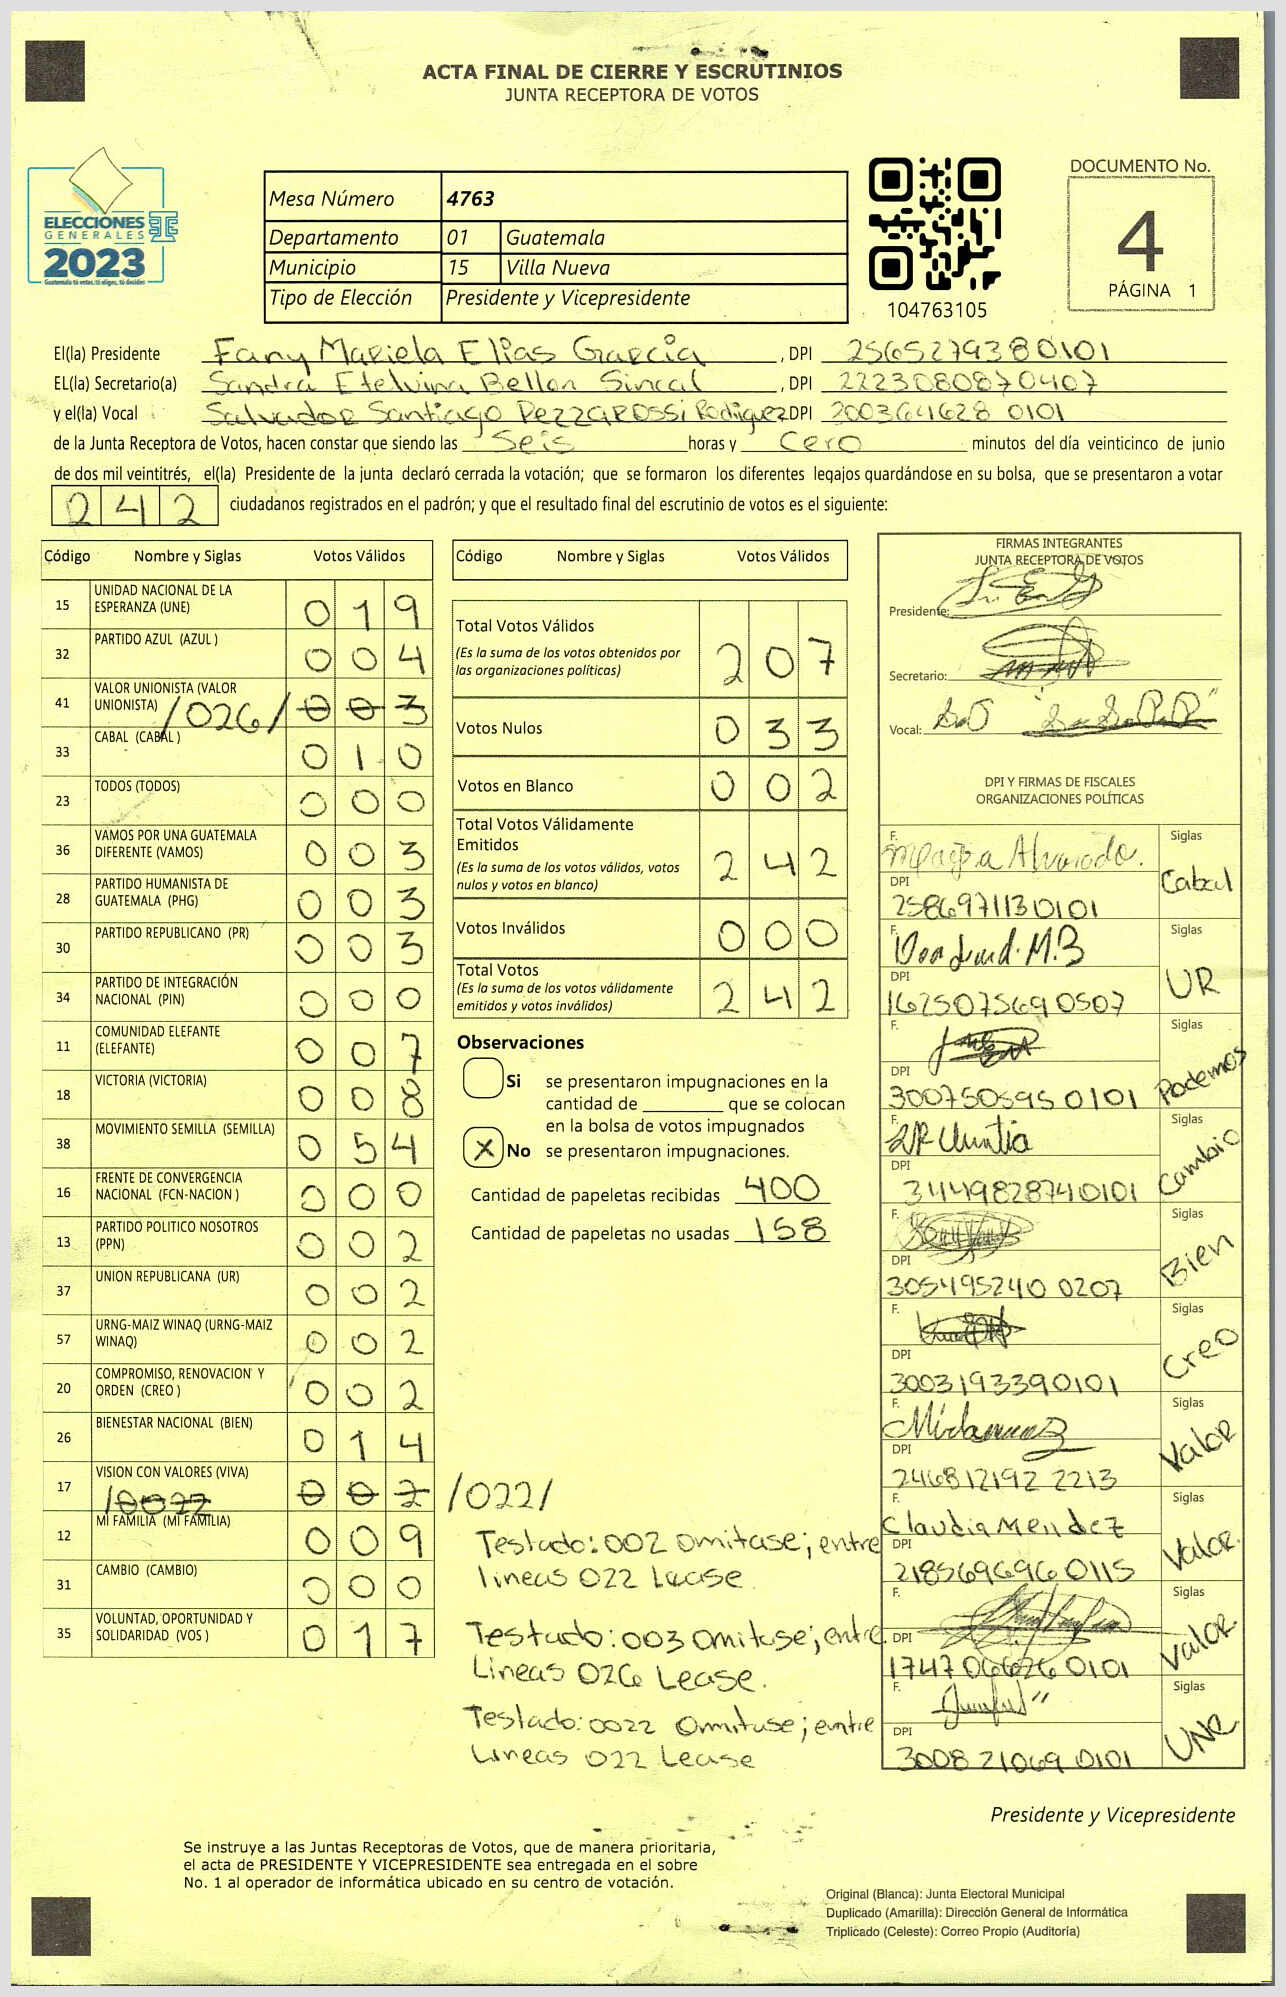 ACTA FINAL DE CIERRE Y ESCRUTINIOS
JUNTA RECEPTORA DE VOTOS
ELECCIONES
GENERALES
2023
Guatemala tú votas, tú eliges, tú decides
Mesa Número 4763
Departamento 01 Guatemala
Municipio 15 Villa Nueva
Tipo de Elección Presidente y Vicepresidente
104763105
DOCUMENTO No.
4
PÁGINA 1
El(la) Presidente Fany Mariela Elias García , DPI 2565279380101
EL(la) Secretario(a) Sandra Etelvina Bellon Sincal , DPI 2223080870407
y el(la) Vocal Salvador Santiago Pezzarossi Rodriguez DPI 200364628 0101
de la Junta Receptora de Votos, hacen constar que siendo las Seis horas y Cero minutos del día veinticinco de junio
de dos mil veintitrés, el(la) Presidente de la junta declaró cerrada la votación; que se formaron los diferentes legajos guardándose en su bolsa, que se presentaron a votar
242 ciudadanos registrados en el padrón; y que el resultado final del escrutinio de votos es el siguiente:
Código Nombre y Siglas Votos Válidos
15 UNIDAD NACIONAL DE LA ESPERANZA (UNE) 019
32 PARTIDO AZUL (AZUL ) 004
41 VALOR UNIONISTA (VALOR UNIONISTA) /026/ 003
33 CABAL (CABAL ) 010
23 TODOS (TODOS) 000
36 VAMOS POR UNA GUATEMALA DIFERENTE (VAMOS) 003
28 PARTIDO HUMANISTA DE GUATEMALA (PHG) 003
30 PARTIDO REPUBLICANO (PR) 003
34 PARTIDO DE INTEGRACIÓN NACIONAL (PIN) 000
11 COMUNIDAD ELEFANTE (ELEFANTE) 007
18 VICTORIA (VICTORIA) 008
38 MOVIMIENTO SEMILLA (SEMILLA) 054
16 FRENTE DE CONVERGENCIA NACIONAL (FCN-NACION ) 000
13 PARTIDO POLITICO NOSOTROS (PPN) 002
37 UNION REPUBLICANA (UR) 002
57 URNG-MAIZ WINAQ (URNG-MAIZ WINAQ) 002
20 COMPROMISO, RENOVACION Y ORDEN (CREO ) 002
26 BIENESTAR NACIONAL (BIEN) 014
17 VISION CON VALORES (VIVA) /0022 002 /022/
12 MI FAMILIA (MI FAMILIA) 009
31 CAMBIO (CAMBIO) 000
35 VOLUNTAD, OPORTUNIDAD Y SOLIDARIDAD (VOS ) 017
Código Nombre y Siglas Votos Válidos
Total Votos Válidos 207
(Es la suma de los votos obtenidos por
las organizaciones políticas)
Votos Nulos 033
Votos en Blanco 002
Total Votos Válidamente
Emitidos 242
(Es la suma de los votos válidos, votos
nulos y votos en blanco)
Votos Inválidos 000
Total Votos 242
(Es la suma de los votos válidamente
emitidos y votos inválidos)
Observaciones
Si se presentaron impugnaciones en la
cantidad de ________ que se colocan
en la bolsa de votos impugnados
X No se presentaron impugnaciones.
Cantidad de papeletas recibidas 400
Cantidad de papeletas no usadas 158
Testado: 002 omitase; entre
lineas 022 Lease
Testado: 003 omitase; entre
Lineas 026 Lease.
Testado: 0022 Omitase; entre
Lineas 022 Lease
FIRMAS INTEGRANTES
JUNTA RECEPTORA DE VOTOS
Presidente:
Secretario:
Vocal:
DPI Y FIRMAS DE FISCALES
ORGANIZACIONES POLÍTICAS
F. Alvarado. Siglas
DPI 2586971130101 Cabal
F. M.B Siglas
DPI 1625075690507 UR
F. Siglas
DPI 300750595 0101 Podemos
F. Siglas
DPI 3449828740101 Cambio
F. Siglas
DPI 305495240 0207 Bien
F. Siglas
DPI 3003193390101 Creo
F. Siglas
DPI 246812192 2213 Valor
F. Claudia Mendez Siglas
DPI 218569696 0115 Valor.
F. Siglas
DPI 1747 06626 0101 Valor
F. Siglas
DPI 3008 21069 0101 UNE
Presidente y Vicepresidente
Se instruye a las Juntas Receptoras de Votos, que de manera prioritaria,
el acta de PRESIDENTE Y VICEPRESIDENTE sea entregada en el sobre
No. 1 al operador de informática ubicado en su centro de votación.
Original (Blanca): Junta Electoral Municipal
Duplicado (Amarilla): Dirección General de Informática
Triplicado (Celeste): Correo Propio (Auditoría)